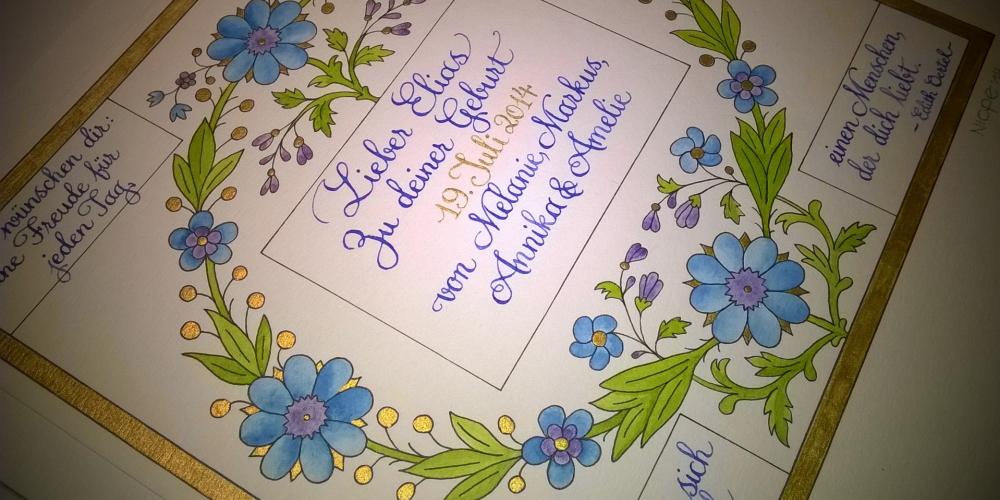 wünschen dir:
Freude für
jeden Tag,
Lieber Elias
Zu deiner Geburt
19. Juli 2014
von Melanie, Markus,
Annika & Amelie
einen Menschen,
der dich liebt.
sich